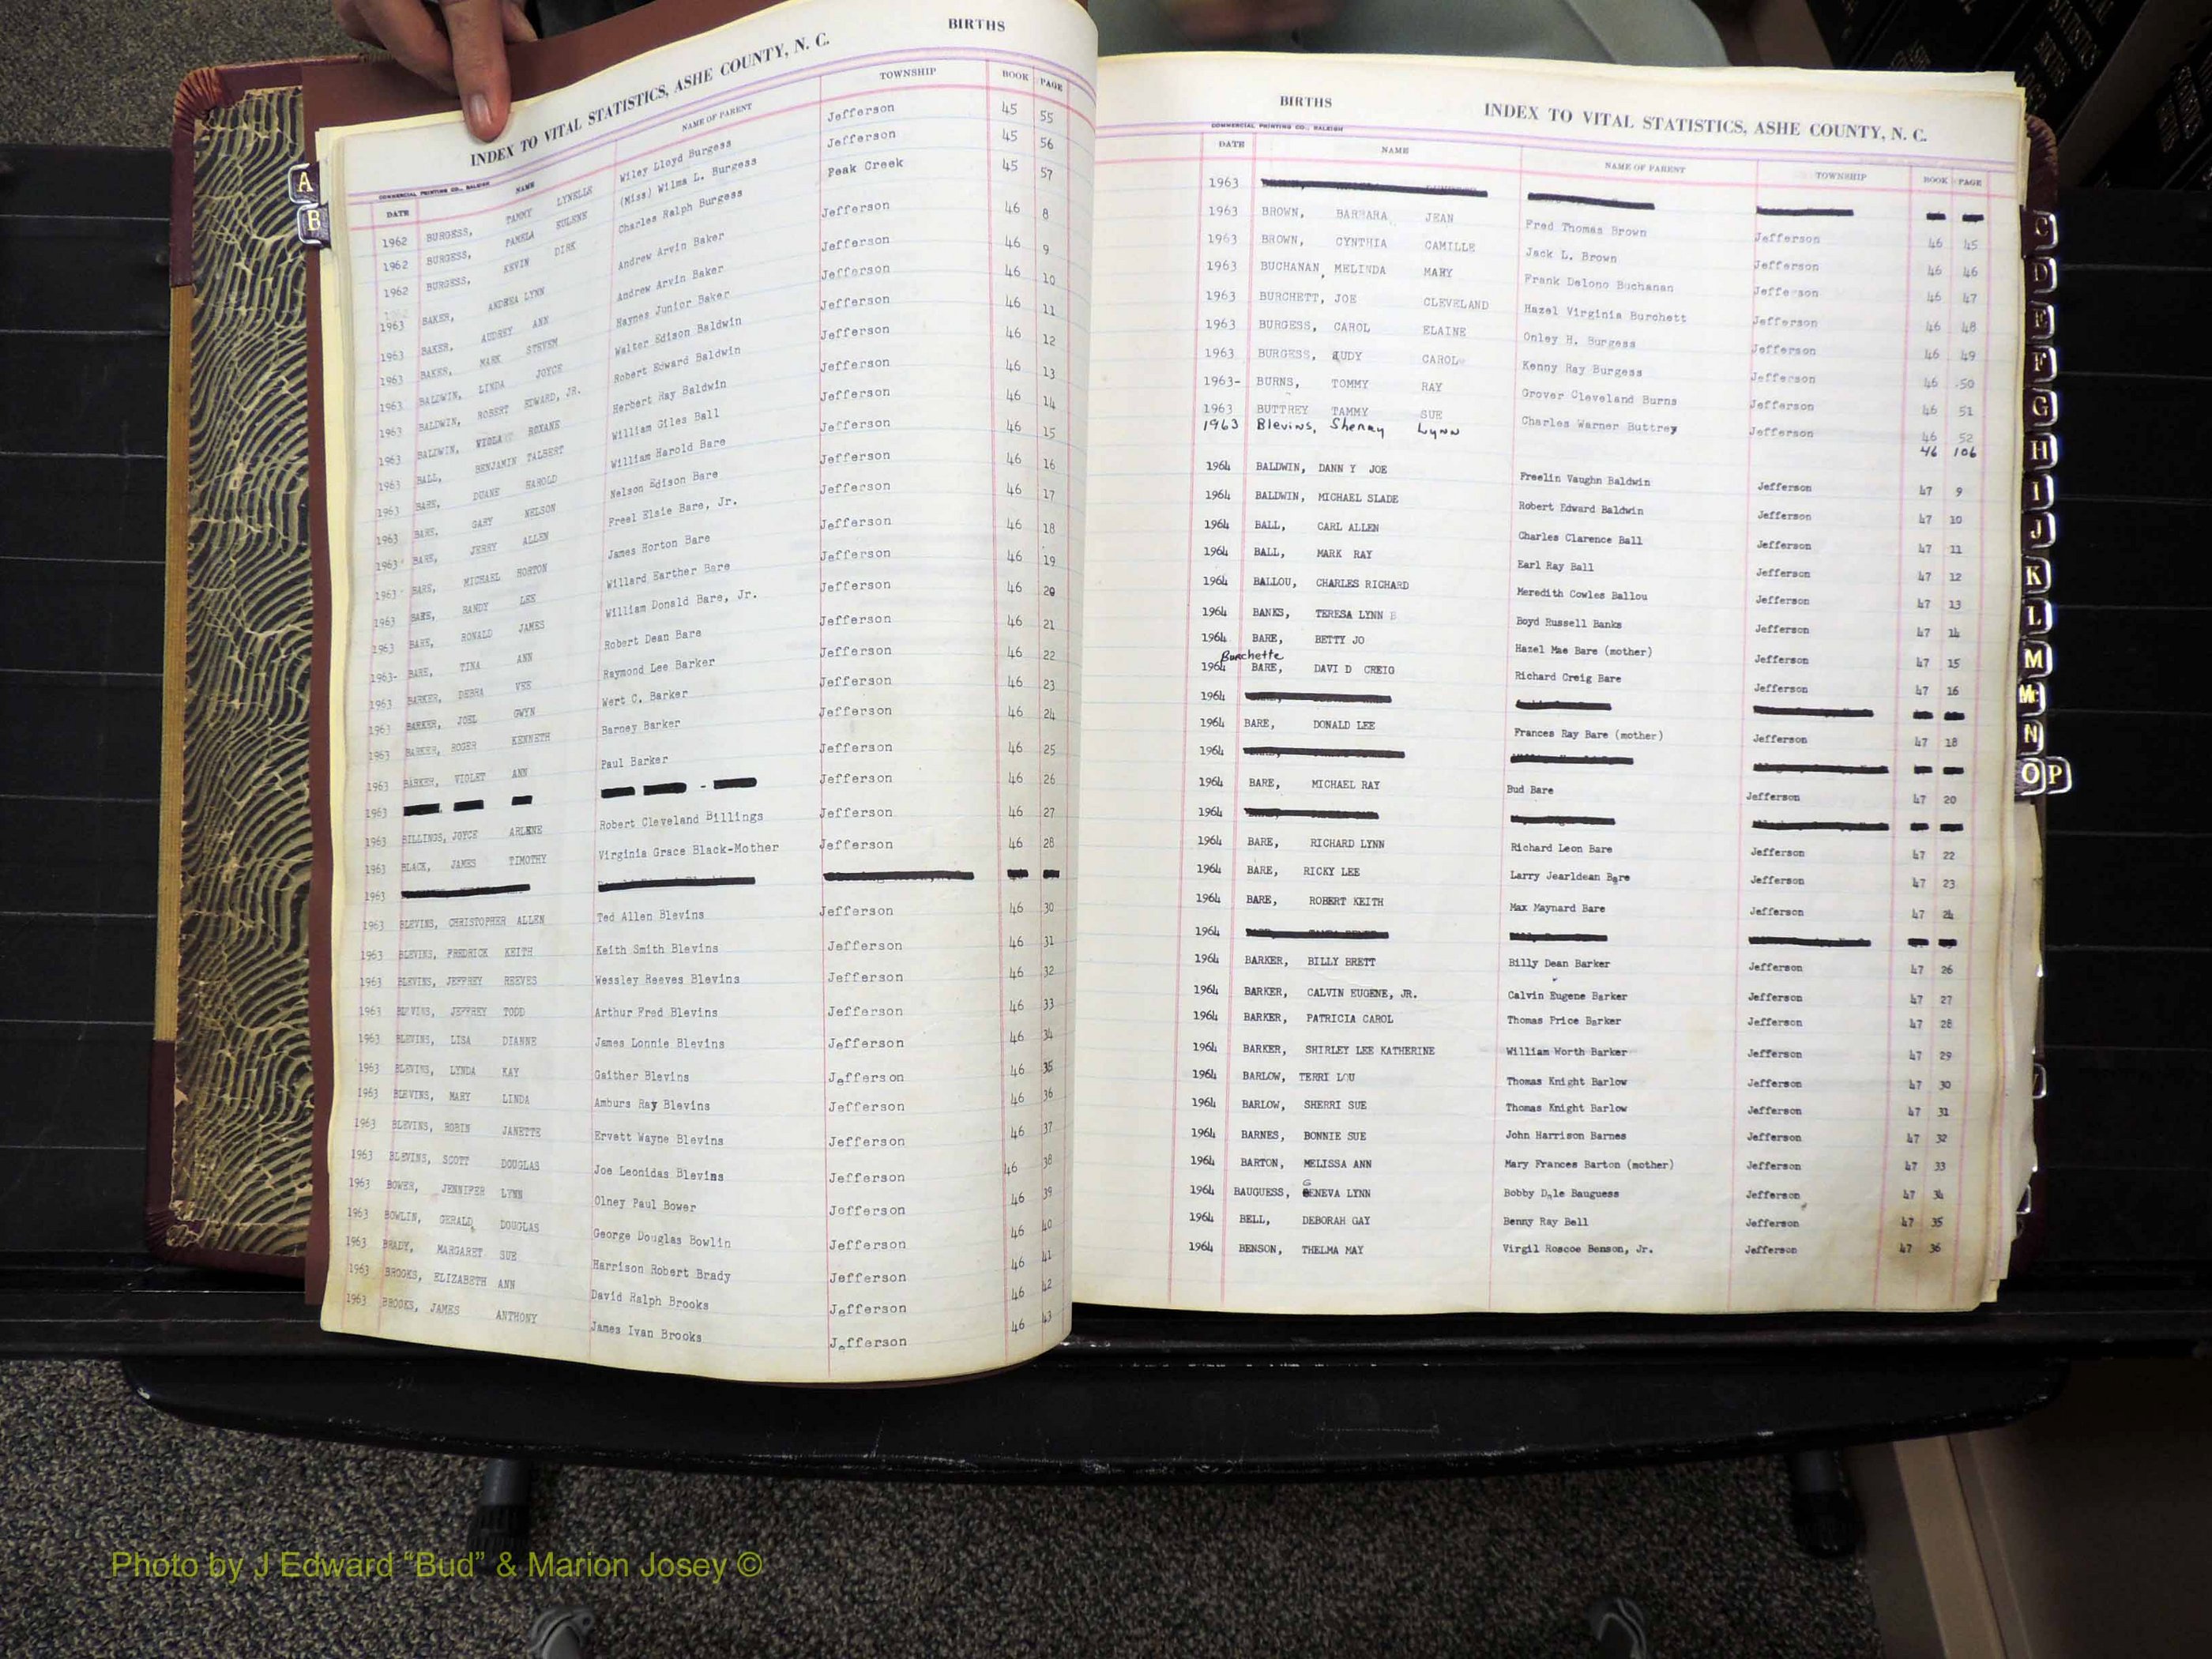 BIRTHS
INDEX TO VITAL STATISTICS, ASHE COUNTY, N. C.
COMMERCIAL PRINTING CO., RALEIGH
DATE NAME NAME OF PARENT TOWNSHIP BOOK PAGE
1962 BURGESS, TAMMY LYNELLE Wiley Lloyd Burgess Jefferson 45 55
1962 BURGESS, PAMELA EULENE (Miss) Wilma L. Burgess Jefferson 45 56
1962 BURGESS, KEVIN DIRK Charles Ralph Burgess Peak Creek 45 57
1963 BAKER, ANDREA LYNN Andrew Arvin Baker Jefferson 46 8
1963 BAKER, AUDREY ANN Andrew Arvin Baker Jefferson 46 9
1963 BAKER, MARK STEVEM Haynes Junior Baker Jefferson 46 10
1963 BALDWIN, LINDA JOYCE Walter Edison Baldwin Jefferson 46 11
1963 BALDWIN, ROBERT EDWARD, JR. Robert Edward Baldwin Jefferson 46 12
1963 BALDWIN, VIOLA ROXANE Herbert Ray Baldwin Jefferson 46 13
1963 BALL, BENJAMIN TALBERT William Giles Ball Jefferson 46 14
1963 BARE, DUANE HAROLD William Harold Bare Jefferson 46 15
1963 BARE, GARY NELSON Nelson Edison Bare Jefferson 46 16
1963 BARE, JERRY ALLEN Freel Elsie Bare, Jr. Jefferson 46 17
1963 BARE, MICHAEL HORTON James Horton Bare Jefferson 46 18
1963 BARE, RANDY LEE Willard Earther Bare Jefferson 46 19
1963 BARE, RONALD JAMES William Donald Bare, Jr. Jefferson 46 20
1963- BARE, TINA ANN Robert Dean Bare Jefferson 46 21
1963 BARKER, DEBRA VEE Raymond Lee Barker Jefferson 46 22
1963 BARKER, JOEL GWYN Wert C. Barker Jefferson 46 23
1963 BARKER, ROGER KENNETH Barney Barker Jefferson 46 24
1963 BARKER, VIOLET ANN Paul Barker Jefferson 46 25
1963 Jefferson 46 26
1963 BILLINGS, JOYCE ARLENE Robert Cleveland Billings Jefferson 46 27
1963 BLACK, JAMES TIMOTHY Virginia Grace Black-Mother Jefferson 46 28
1963
1963 BLEVINS, CHRISTOPHER ALLEN Ted Allen Blevins Jefferson 46 30
1963 BLEVINS, FREDRICK KEITH Keith Smith Blevins Jefferson 46 31
1963 BLEVINS, JEFFREY REEVES Wessley Reeves Blevins Jefferson 46 32
1963 BLEVINS, JEFFREY TODD Arthur Fred Blevins Jefferson 46 33
1963 BLEVINS, LISA DIANNE James Lonnie Blevins Jefferson 46 34
1963 BLEVINS, LYNDA KAY Gaither Blevins Jefferson 46 35
1963 BLEVINS, MARY LINDA Amburs Ray Blevins Jefferson 46 36
1963 BLEVINS, ROBIN JANETTE Ervett Wayne Blevins Jefferson 46 37
1963 BLEVINS, SCOTT DOUGLAS Joe Leonidas Blevins Jefferson 46 38
1963 BOWER, JENNIFER LYNN Olney Paul Bower Jefferson 46 39
1963 BOWLIN, GERALD DOUGLAS George Douglas Bowlin Jefferson 46 40
1963 BRADY, MARGARET SUE Harrison Robert Brady Jefferson 46 41
1963 BROOKS, ELIZABETH ANN David Ralph Brooks Jefferson 46 42
1963 BROOKS, JAMES ANTHONY James Ivan Brooks Jefferson 46 43
A
B
BIRTHS
INDEX TO VITAL STATISTICS, ASHE COUNTY, N. C.
COMMERCIAL PRINTING CO., RALEIGH
DATE NAME NAME OF PARENT TOWNSHIP BOOK PAGE
1963
1963 BROWN, BARBARA JEAN Fred Thomas Brown Jefferson 46 45
1963 BROWN, CYNTHIA CAMILLE Jack L. Brown Jefferson 46 46
1963 BUCHANAN, MELINDA MARY Frank Delono Buchanan Jefferson 46 47
1963 BURCHETT, JOE CLEVELAND Hazel Virginia Burchett Jefferson 46 48
1963 BURGESS, CAROL ELAINE Onley H. Burgess Jefferson 46 49
1963 BURGESS, JUDY CAROL Kenny Ray Burgess Jefferson 46 50
1963- BURNS, TOMMY RAY Grover Cleveland Burns Jefferson 46 51
1963 BUTTREY TAMMY SUE Charles Warner Buttrey Jefferson 46 52
1963 Blevins, Sherry Lynn 46 106
1964 BALDWIN, DANN Y JOE Freelin Vaughn Baldwin Jefferson 47 9
1964 BALDWIN, MICHAEL SLADE Robert Edward Baldwin Jefferson 47 10
1964 BALL, CARL ALLEN Charles Clarence Ball Jefferson 47 11
1964 BALL, MARK RAY Earl Ray Ball Jefferson 47 12
1964 BALLOU, CHARLES RICHARD Meredith Cowles Ballou Jefferson 47 13
1964 BANKS, TERESA LYNN B Boyd Russell Banks Jefferson 47 14
1964 BARE, BETTY JO Hazel Mae Bare (mother) Jefferson 47 15
Burchette
1964 BARE, DAVI D CREIG Richard Creig Bare Jefferson 47 16
1964
1964 BARE, DONALD LEE Frances Ray Bare (mother) Jefferson 47 18
1964
1964 BARE, MICHAEL RAY Bud Bare Jefferson 47 20
1964
1964 BARE, RICHARD LYNN Richard Leon Bare Jefferson 47 22
1964 BARE, RICKY LEE Larry Jearldean Bare Jefferson 47 23
1964 BARE, ROBERT KEITH Max Maynard Bare Jefferson 47 24
1964
1964 BARKER, BILLY BRETT Billy Dean Barker Jefferson 47 26
1964 BARKER, CALVIN EUGENE, JR. Calvin Eugene Barker Jefferson 47 27
1964 BARKER, PATRICIA CAROL Thomas Price Barker Jefferson 47 28
1964 BARKER, SHIRLEY LEE KATHERINE William Worth Barker Jefferson 47 29
1964 BARLOW, TERRI LOU Thomas Knight Barlow Jefferson 47 30
1964 BARLOW, SHERRI SUE Thomas Knight Barlow Jefferson 47 31
1964 BARNES, BONNIE SUE John Harrison Barnes Jefferson 47 32
1964 BARTON, MELISSA ANN Mary Frances Barton (mother) Jefferson 47 33
1964 BAUGUESS, GENEVA LYNN Bobby Dale Bauguess Jefferson 47 34
1964 BELL, DEBORAH GAY Benny Ray Bell Jefferson 47 35
1964 BENSON, THELMA MAY Virgil Roscoe Benson, Jr. Jefferson 47 36
C
D
E
F
G
H
I
J
K
L
M
Mc
N
O P
Photo by J Edward "Bud" & Marion Josey ©